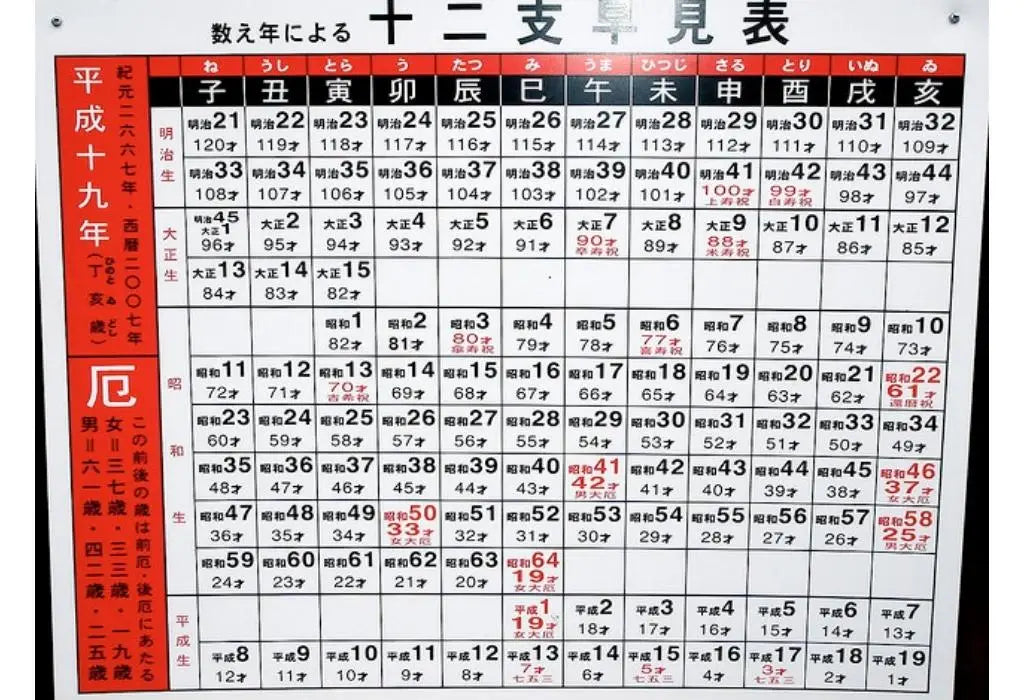 数え年による 十二支早見表
平成十九年（丁亥歳）
ひのと ゐ どし
紀元二六六七年・西暦二〇〇七年
厄
この前後の歳は前厄・後厄にあたる
女＝三七歳・三三歳・一九歳
男＝六一歳・四二歳・二五歳
ね うし とら う たつ み うま ひつじ さる とり いぬ ゐ
子 丑 寅 卯 辰 巳 午 未 申 酉 戌 亥
明治生
明治21 明治22 明治23 明治24 明治25 明治26 明治27 明治28 明治29 明治30 明治31 明治32
120才 119才 118才 117才 116才 115才 114才 113才 112才 111才 110才 109才
明治33 明治34 明治35 明治36 明治37 明治38 明治39 明治40 明治41 明治42 明治43 明治44
108才 107才 106才 105才 104才 103才 102才 101才 100才 99才 98才 97才
上寿祝 白寿祝
大正生
明治45 大正1 大正2 大正3 大正4 大正5 大正6 大正7 大正8 大正9 大正10 大正11 大正12
96才 95才 94才 93才 92才 91才 90才 89才 88才 87才 86才 85才
卒寿祝 米寿祝
大正13 大正14 大正15
84才 83才 82才
昭和生
昭和1 昭和2 昭和3 昭和4 昭和5 昭和6 昭和7 昭和8 昭和9 昭和10
82才 81才 80才 79才 78才 77才 76才 75才 74才 73才
傘寿祝 喜寿祝
昭和11 昭和12 昭和13 昭和14 昭和15 昭和16 昭和17 昭和18 昭和19 昭和20 昭和21 昭和22
72才 71才 70才 69才 68才 67才 66才 65才 64才 63才 62才 61才
古希祝 還暦祝
昭和23 昭和24 昭和25 昭和26 昭和27 昭和28 昭和29 昭和30 昭和31 昭和32 昭和33 昭和34
60才 59才 58才 57才 56才 55才 54才 53才 52才 51才 50才 49才
昭和35 昭和36 昭和37 昭和38 昭和39 昭和40 昭和41 昭和42 昭和43 昭和44 昭和45 昭和46
48才 47才 46才 45才 44才 43才 42才 41才 40才 39才 38才 37才
男大厄 女大厄
昭和47 昭和48 昭和49 昭和50 昭和51 昭和52 昭和53 昭和54 昭和55 昭和56 昭和57 昭和58
36才 35才 34才 33才 32才 31才 30才 29才 28才 27才 26才 25才
女大厄 男大厄
昭和59 昭和60 昭和61 昭和62 昭和63 昭和64
24才 23才 22才 21才 20才 19才
女大厄
平成生
平成1 平成2 平成3 平成4 平成5 平成6 平成7
19才 18才 17才 16才 15才 14才 13才
女大厄
平成8 平成9 平成10 平成11 平成12 平成13 平成14 平成15 平成16 平成17 平成18 平成19
12才 11才 10才 9才 8才 7才 6才 5才 4才 3才 2才 1才
七五三 七五三 七五三